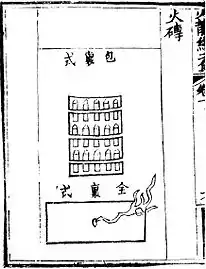 火磚
包裹式
全裹式